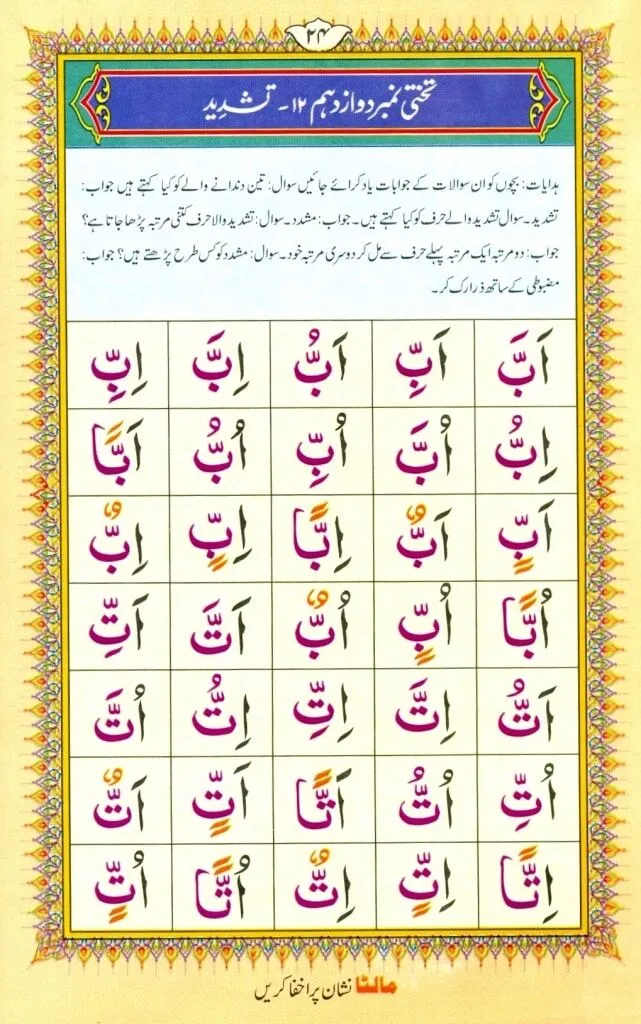 ۲۴
تختی نمبر دوازدہم ۱۲۔ تشدِید
ہدایات: بچوں کو ان سوالات کے جوابات یاد کرائے جائیں سوال: تین دندانے والے کو کیا کہتے ہیں جواب:
تشدید۔ سوال تشدید والے حرف کو کیا کہتے ہیں۔ جواب: مشدد۔ سوال: تشدید والا حرف کتنی مرتبہ پڑھا جاتا ہے؟
جواب: دو مرتبہ ایک مرتبہ پہلے حرف سے مل کر دوسری مرتبہ خود۔ سوال: مشدد کو کس طرح پڑھتے ہیں؟ جواب:
مضبوطی کے ساتھ ذرا رک کر۔
اَبَّ اَبِّ اَبُّ اِبَّ اِبِّ
اِبُّ اُبَّ اُبِّ اُبُّ اَبًّا
اَبٍّ اَبٌّ اِبًّا اِبٍّ اِبٌّ
اُبًّا اُبٍّ اُبٌّ اَتَّ اَتِّ
اَتُّ اِتَّ اِتِّ اِتُّ اُتَّ
اُتِّ اُتُّ اَتًّا اَتٍّ اَتٌّ
اِتًّا اِتٍّ اِتٌّ اُتًّا اُتٍّ
مالٹا نشان پر اخفا کریں